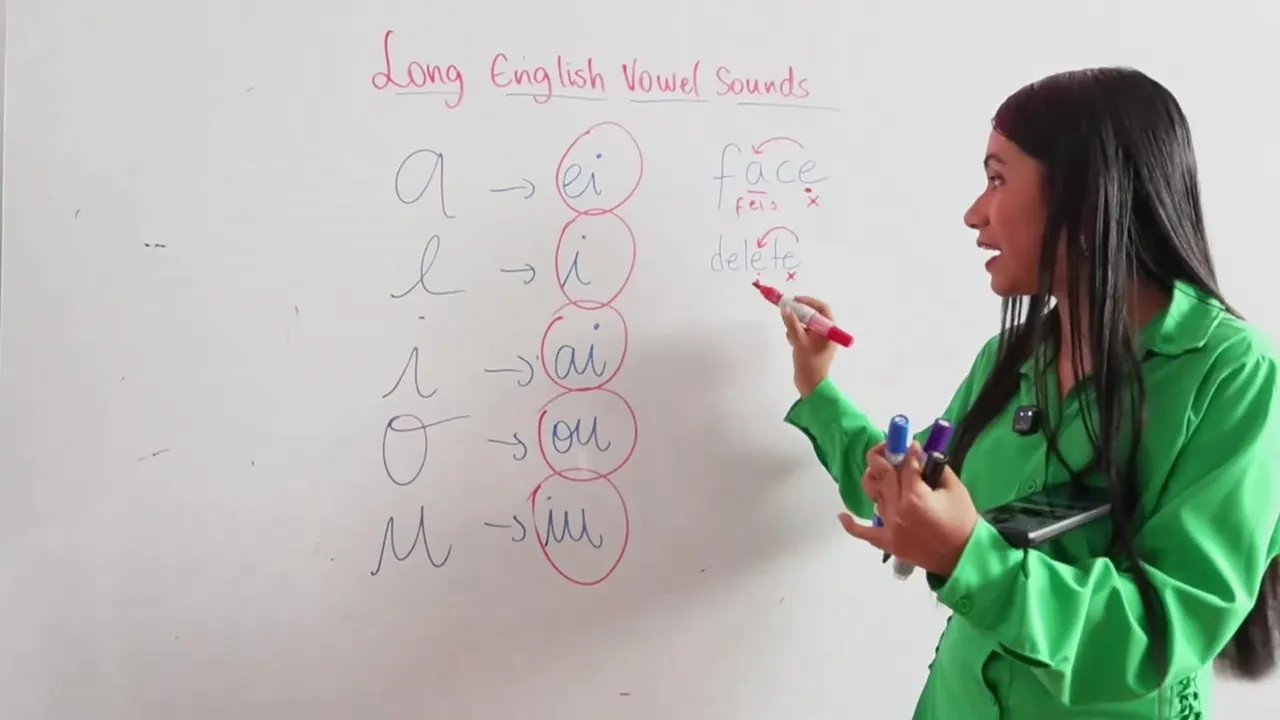 Long English Vowel Sounds
a → ei
e → i
i → ai
o → ou
u → iu
face
feis x
delete
x